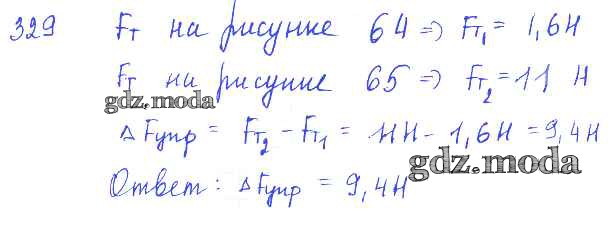 329 Fт на рисунке 64 => Fт₁ = 1,6Н
Fт на рисунке 65 => Fт₂ = 11 Н
gdz.moda
△Fупр = Fт₂ - Fт₁ = 11Н - 1,6Н = 9,4Н
gdz.moda
Ответ: △Fупр = 9,4Н